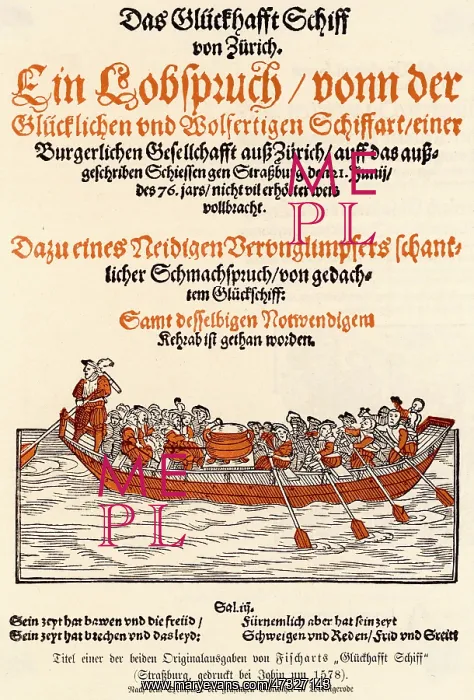 Das Glückhafft Schiff
von Zürich.
Ein Lobspruch / vonn der
Glücklichen vnd Wolfertigen Schiffart / einer
Burgerlichen Gesellchafft auß Zürich / auff das auß-
geschriben Schiessen gen Straßburg den 21. Junij /
des 76. jars / nicht vil erhörter weis
vollbracht.
Dazu eines Neidigen Verunglimpfers schant-
licher Schmachspruch / von gedach-
tem Glückschiff:
Samt desselbigen Notwendigem
Kehrab ist gethan worden.
ME
PL
ME
PL
Sal. iij.
Sein zeyt hat bawen vnd die freüd /
Sein zeyt hat brechen vnd das leyd:
Fürnemlich aber hat sein zeyt
Schweigen vnd Reden / Frid vnd Streitt
Titel einer der beiden Originalausgaben von Fischarts „Glückhafft Schiff“
(Straßburg, gedruckt bei Jobin um 1578).
www.maryevans.com/47927148